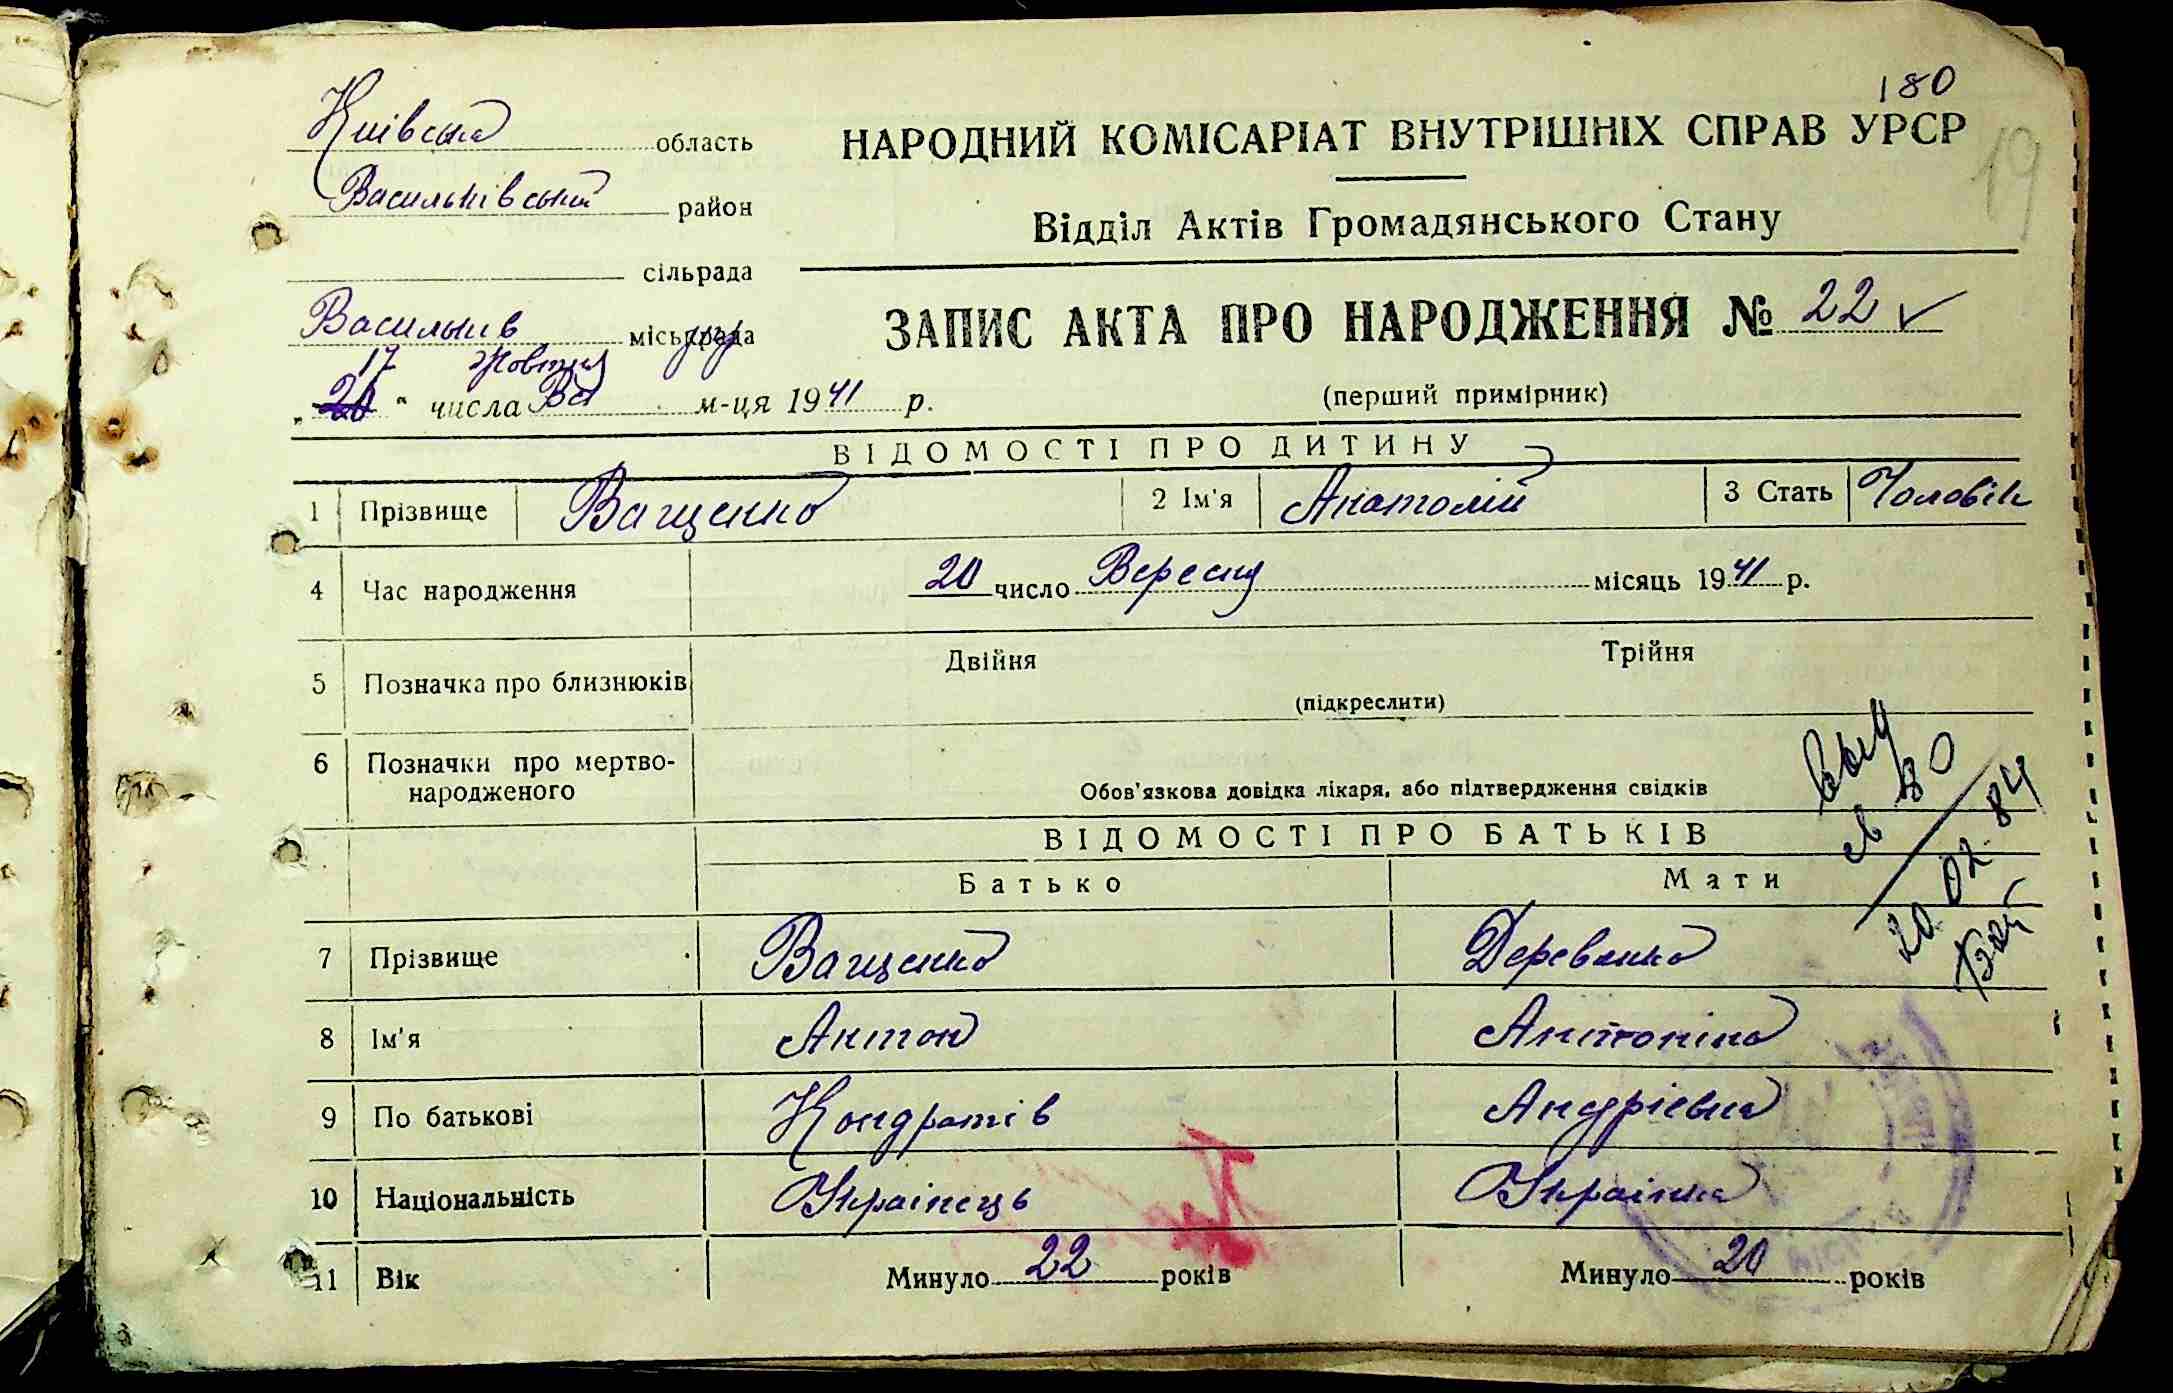 180
19
Київська область
Васильківський район
сільрада
Васильків міськрада
НАРОДНИЙ КОМІСАРІАТ ВНУТРІШНІХ СПРАВ УРСР
Відділ Актів Громадянського Стану
ЗАПИС АКТА ПРО НАРОДЖЕННЯ № 22
(перший примірник)
17 Жовтня
„20“ числа Ве м-ця 1941 р.
ВІДОМОСТІ ПРО ДИТИНУ
1 Прізвище Ващенко 2 Ім'я Анатолій 3 Стать Чоловік
4 Час народження 20 число Вересня місяць 1941 р.
5 Позначка про близнюків Двійня Трійня
(підкреслити)
6 Позначки про мертво-
народженого
Обов'язкова довідка лікаря, або підтвердження свідків
20.02.84
ВІДОМОСТІ ПРО БАТЬКІВ
Батько Мати
7 Прізвище Ващенко Деревянко
8 Ім'я Антон Антоніна
9 По батькові Кондратів Андрієвна
10 Національність Українець Українка
11 Вік Минуло 22 років Минуло 20 років